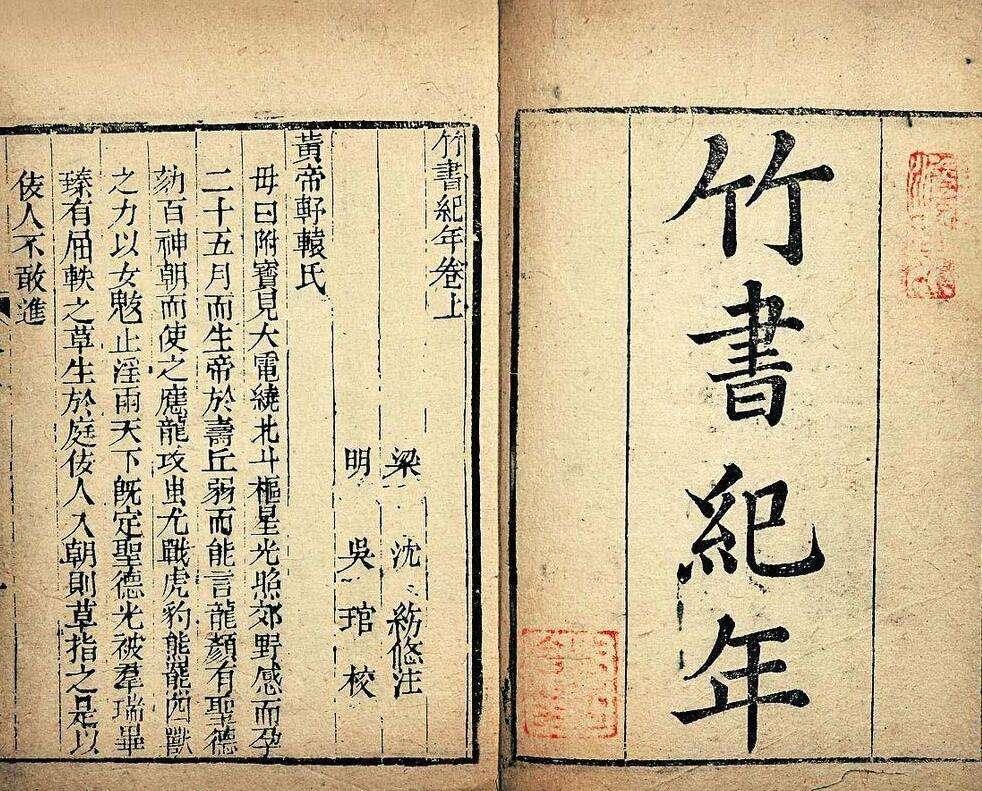 竹書紀年
竹書紀年卷上
梁 沈 注
明 吳 琯 校
黃帝軒轅氏
母曰附寶見大電繞北斗樞星光照郊野感而孕
二十五月而生帝於壽丘弱而能言龍顏有聖德
劾百神朝而使之應龍攻蚩尤戰虎豹熊羆四獸
之力以女魃止淫雨天下旣定聖德光被羣瑞畢
臻有屈軼之草生於庭佞人入朝則草指之是以
佞人不敢進